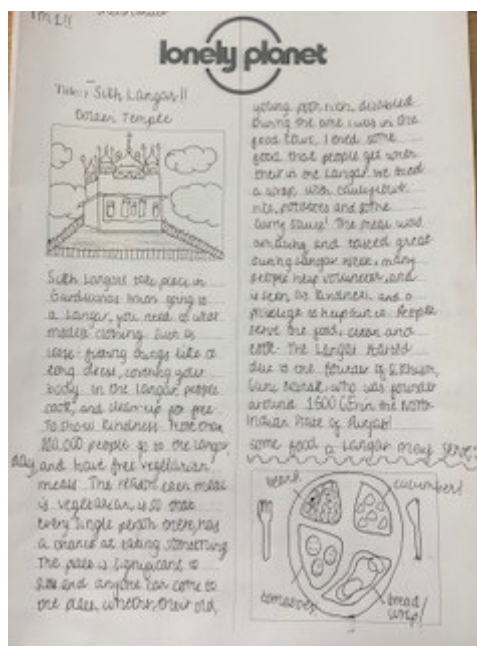 lonely planet
Title:- Sikh Langar!!
Golden Temple
Sikh Langars take place in
Gurdwaras. When going to
a Langar, you need to wear
modest clothing such as
loose-flowing things like a
long dress, covering your
body. In the Langar, people
cook, and clean-up for free
to show kindness. More than
100,000 people go to the Langar,
day and have free vegetarian
meals. The reason each meal
is vegetarian, is so that
every single person there, has
a chance at eating something
The place is significant to
and anyone can come to
the place, whether, their old,
young, poor, rich, disabled
During the time i was in the
food town, I tried some
food that people get when
their in the Langar. We tried
a wrap, with cauliflower
rice, potatoes and some
curry sauce! The meal was
amazing and tasted great
during Langar Week, many
people help volunteer, and
is seen as kindness and a
privilege to help in it. People
serve the food, clean and
cook. The Langar started
due to the founder of Sikhism,
Guru Nanak, who was founder
around 1500 CE in the North
Indian State of Punjab!
some food a Langar may serve:
beans
cucumber!
tomatoes
bread/
wrap!